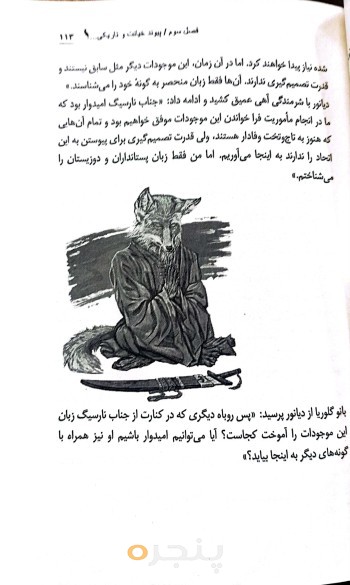 فصل سوم / پیوند خیانت و تاریکی... ۱۱۳
شده نیاز پیدا خواهند کرد. اما در آن زمان، این موجودات دیگر مثل سابق نیستند و
قدرت تصمیم‌گیری ندارند. آن‌ها فقط زبان منحصر به گونهٔ خود را می‌شناسند.»
دیانور با شرمندگی آهی عمیق کشید و ادامه داد: «جناب نارسیگ امیدوار بود که
ما در انجام مأموریت فرا خواندن این موجودات موفق خواهیم بود و تمام آن‌هایی
که هنوز به تاج‌وتخت وفادار هستند، ولی قدرت تصمیم‌گیری برای پیوستن به این
اتحاد را ندارند به اینجا می‌آوریم. اما من فقط زبان پستانداران و دوزیستان را
می‌شناختم.»
بانو گلوریا از دیانور پرسید: «پس روباه دیگری که در کنارت از جناب نارسیگ زبان
این موجودات را آموخت کجاست؟ آیا می‌توانیم امیدوار باشیم او نیز همراه با
گونه‌های دیگر به اینجا بیاید؟»
پنجره